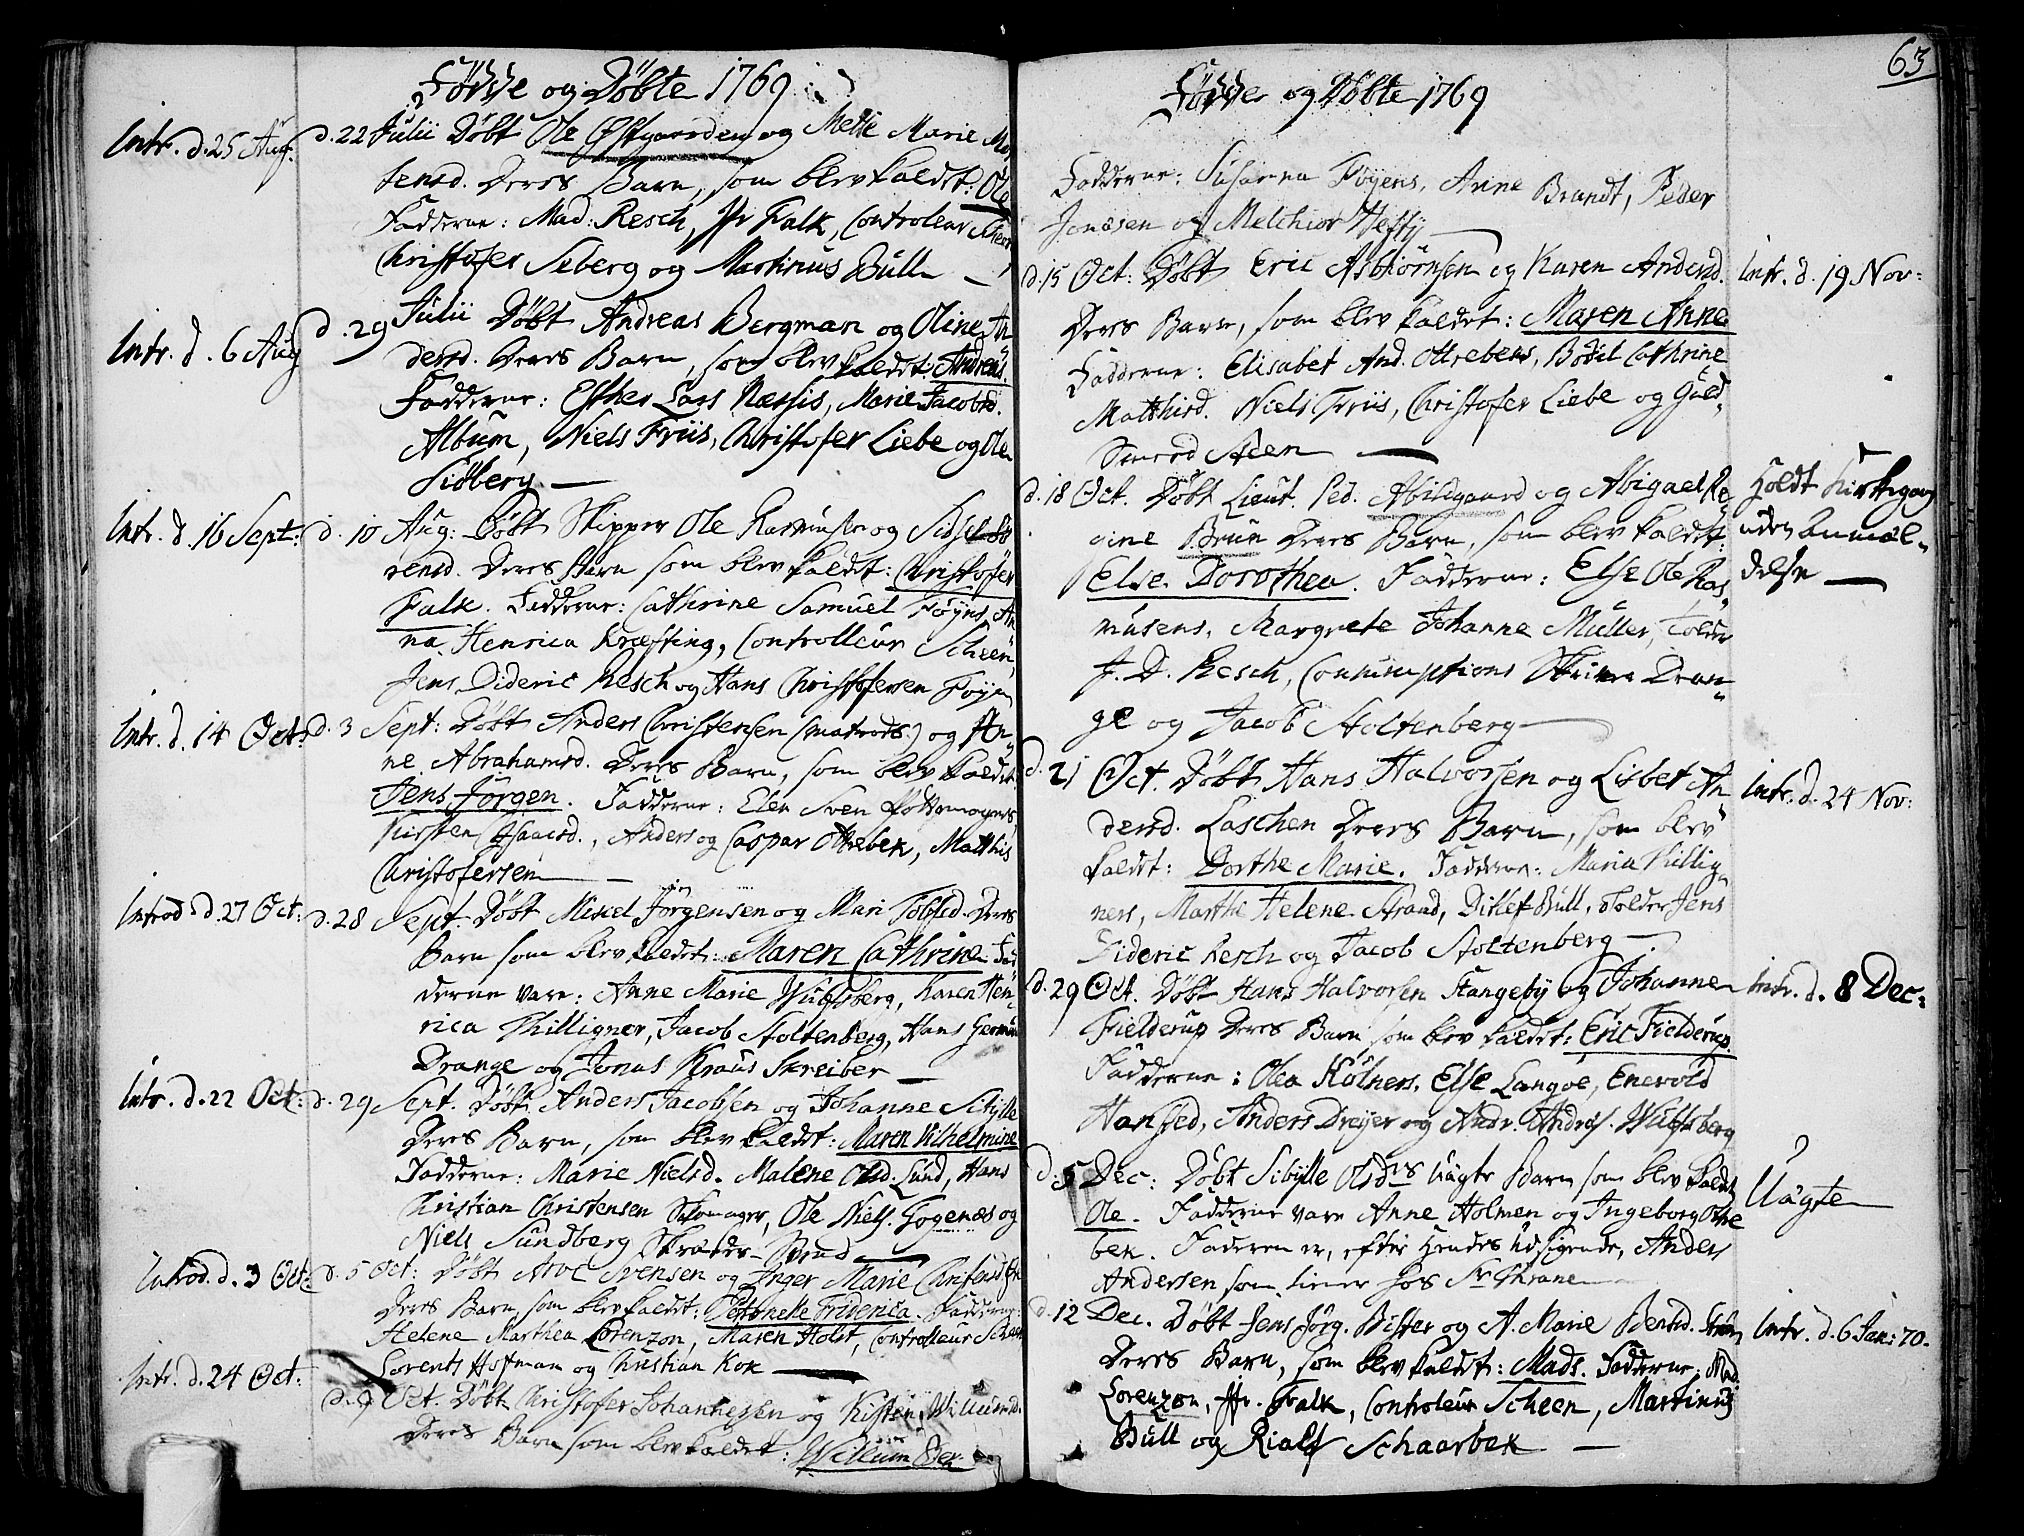 Fødde og Døbte 1769
Intr. d. 25 Aug. d. 22 Julii Døbt Ole Østgaarden og Mette Marie Mor
tensd. Deres Barn, som blev kaldet: Ole
Fadderne: Mad: Resch, Hr Falk, Controleur Scheen
Christofer Seberg og Martinus Bull
Intr. d. 6 Aug d. 29 Julii Døbt Andreas Bergman og Oline An
dersd. Deres Barn, som blev kaldet: Andreas.
Fadderne: Esther Lars Næssis, Marie Jacobsd.
Album, Niels Friis, Christofer Liebe og Ole
Siøberg.
Intr. d. 16 Sept: d. 10 Aug: Døbt Skipper Ole Rasmusen og Sidsel Sø
rensd. Deres Barn som blev kaldet: Christofer
Falk. Fadderne: Cathrine Samuel Føyns, An
na Henrica Kræfting, Controlleur Scheen,
Jens Dideric Resch og Hans Christofersen Føyn
Intr. d. 14 Oct: d. 3 Sept: Døbt Anders Christensen (Matrods.) og An
ne Abrahamsd. Deres Barn, som blev kaldet:
Jens Jörgen. Fadderne: Elen Sven Pottemagers,
Kirsten Isaacsd., Anders og Caspar Ottrebek, Matthis
Christofersen
Introd d. 27 Oct: d. 28 Sept. Døbt Mikel Jörgensen og Mari Tolfsd. Deres
Barn som blev kaldet: Maren Cathrine Fad
derne vare: Anne Marie Wulfsberg, Karen Hen
rica Thilligner, Jacob Stoltenberg, Hans Germun
Drange og Jonas Kraus Skreiber
Intr. d. 22 Oct: d. 29 Sept. Døbt Anders Jacobsen og Johanne Sibylle
Deres Barn, som blev kaldet: Maren Vilhelmine
Fadderne: Marie Nielsd. Malene Olsd. Lund, Hans
Christian Christensen Skomager, Ole Niels. Gogenæs og
Niels Sundberg Skræder-Svend
Introd. d. 3 Oct: d. 5 Oct: Døbt Arve Svensen og Inger Marie
Deres Barn, som blev kaldet: Petronelle Friderica. Fadderne:
Helene Marthea Lorenzon, Maren Holst, Controlleur Scheen
Lorents Hoffman og Christian Kok
Intr. d. 24 Oct: d. 9 Oct. Døbt Christofer Johannesen og Kirsten Willumsd.
Deres Barn som blev kaldet: Willum
63
Fødde og Døbte 1769
Fadderne: Susanna Föyens, Anne Brandt, Peder
Jonasen og Melchior Hefty
d. 15 Oct: Døbt Eric Asbiörnsen og Karen Andersd. Intr. d. 19 Nov:
Deres Barn, som blev kaldet: Maren Anne
Fadderne: Elisabet And. Ottrebeks, Bodil Cathrine
Matthisd. Niels Friis, Christofer Liebe og Guld-
Smed Aden
d. 18 Oct. Døbt Lieut. Ped. Abildgaard og Abigael Re- Holdt Kirkegang
gine Brun Deres Barn, som blev kaldet: uden anmel-
Else Dorothea. Fadderne: Else Ole Ras- delse
musens, Margrete Johanne Müller, Tolder
J. D. Resch, Consumptions Skriver Dran-
ge og Jacob Stoltenberg
d. 21 Oct. Døbt Hans Halvorsen og Lisbet An- Intr. d. 24 Nov:
dersd. Laschen Deres Barn, som blev
kaldet: Dorthe Marie. Fadderne: Maria Thillig-
ners, Marthe Helene Strand, Ditlef Bull, Tolder Jens
Dideric Resch og Jacob Stoltenberg
d. 29 Oct. Døbt Hans Halvorsen Stangeby og Johanne Intr. d. 8 Dec:
Fielderup Deres Barn som blev kaldet: Eric Fielderup.
Fadderne: Olea Kölners, Else Langöe, Enevold
Hansted, Anders Dreyer og Andr. Andræs. Wulfsberg
d. 5 Dec: Døbt Sibylle Olsdrs Uægte Barn som blev kaldet Uægte
Ole. Fadderne vare Anne Holmen og Ingeborg Ottre
bek. Faderen er, efter Hendes Udsigende, Anders
Andersen som tiener hos Sr Thrane
d. 12 Dec. Døbt Jens Jörg. Bister og A. Marie Bentsd. Intr. d. 6 Jan: 70.
Deres Barn, som blev kaldet: Mads. Fadderne: Mad.
Lorenzon, Hr. Falk, Controleur Scheen, Martinus
Bull og Rialf Schaarbek